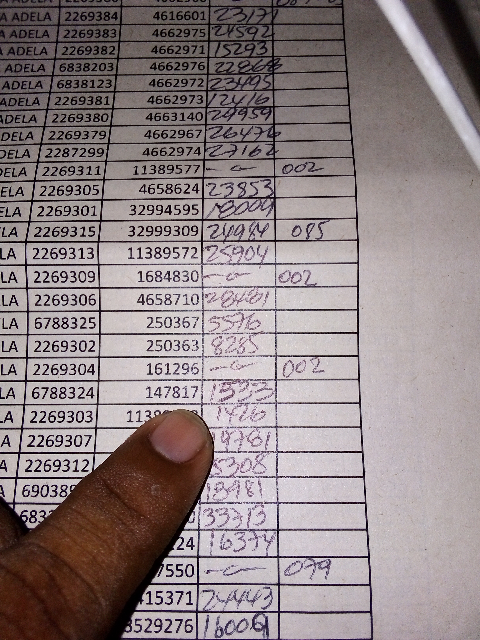 A ADELA 2269384 4616601 23171
A ADELA 2269383 4662975 24592
A ADELA 2269382 4662971 15293
A ADELA 6838203 4662976
ADELA 6838123 4662972 23495
ADELA 2269381 4662973 12416
ADELA 2269380 4663140 24959
ADELA 2269379 4662967 26476
DELA 2287299 4662974 27162
DELA 2269311 11389577 002
ELA 2269305 4658624 23853
ELA 2269301 32994595
ELA 2269315 32999309 24984 085
LA 2269313 11389572 25904
LA 2269309 1684830 002
LA 2269306 4658710 28481
LA 6788325 250367 5576
LA 2269302 250363 8285
LA 2269304 161296 002
LA 6788324 147817 1533
LA 2269303 1426
A 2269307 19781
A 2269312 5308
A 18981
33713
124 16374
7550 099
415371 24443
3529276